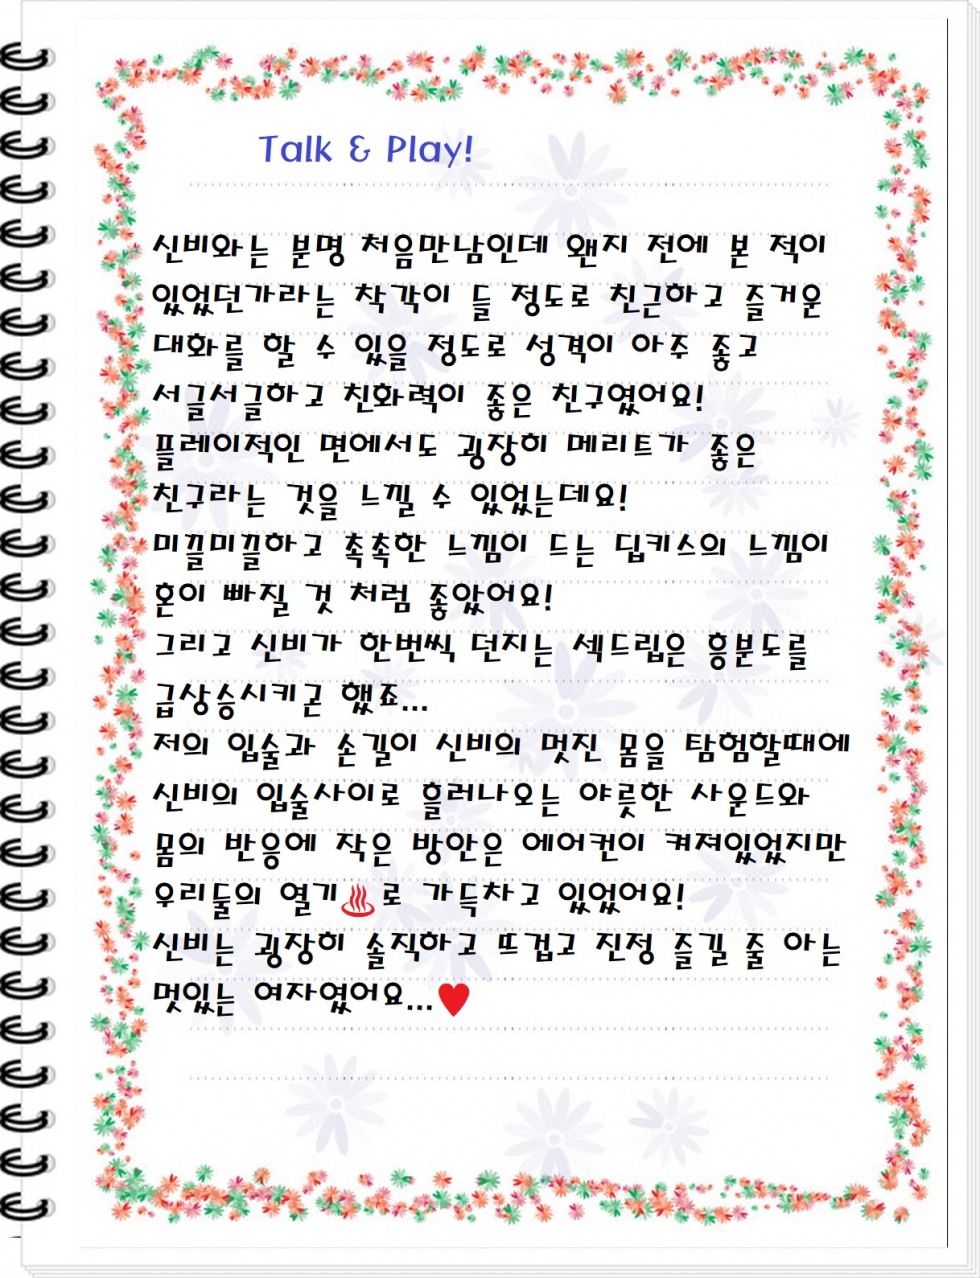 Talk & Play!
신비와는 분명 처음만남인데 왠지 전에 본 적이
있었던가라는 착각이 들 정도로 친근하고 즐거운
대화를 할 수 있을 정도로 성격이 아주 좋고
서글서글하고 친화력이 좋은 친구였어요!
플레이적인 면에서도 굉장히 메리트가 좋은
친구라는 것을 느낄 수 있었는데요!
미끌미끌하고 촉촉한 느낌이 드는 딥키스의 느낌이
혼이 빠질 것 처럼 좋았어요!
그리고 신비가 한번씩 던지는 섹드립은 흥분도를
급상승시키곤 했죠...
저의 입술과 손길이 신비의 멋진 몸을 탐험할때에
신비의 입술사이로 흘러나오는 야릇한 사운드와
몸의 반응에 작은 방안은 에어컨이 켜져있었지만
우리둘의 열기♨로 가득차고 있었어요!
신비는 굉장히 솔직하고 뜨겁고 진정 즐길 줄 아는
멋있는 여자였어요...♥